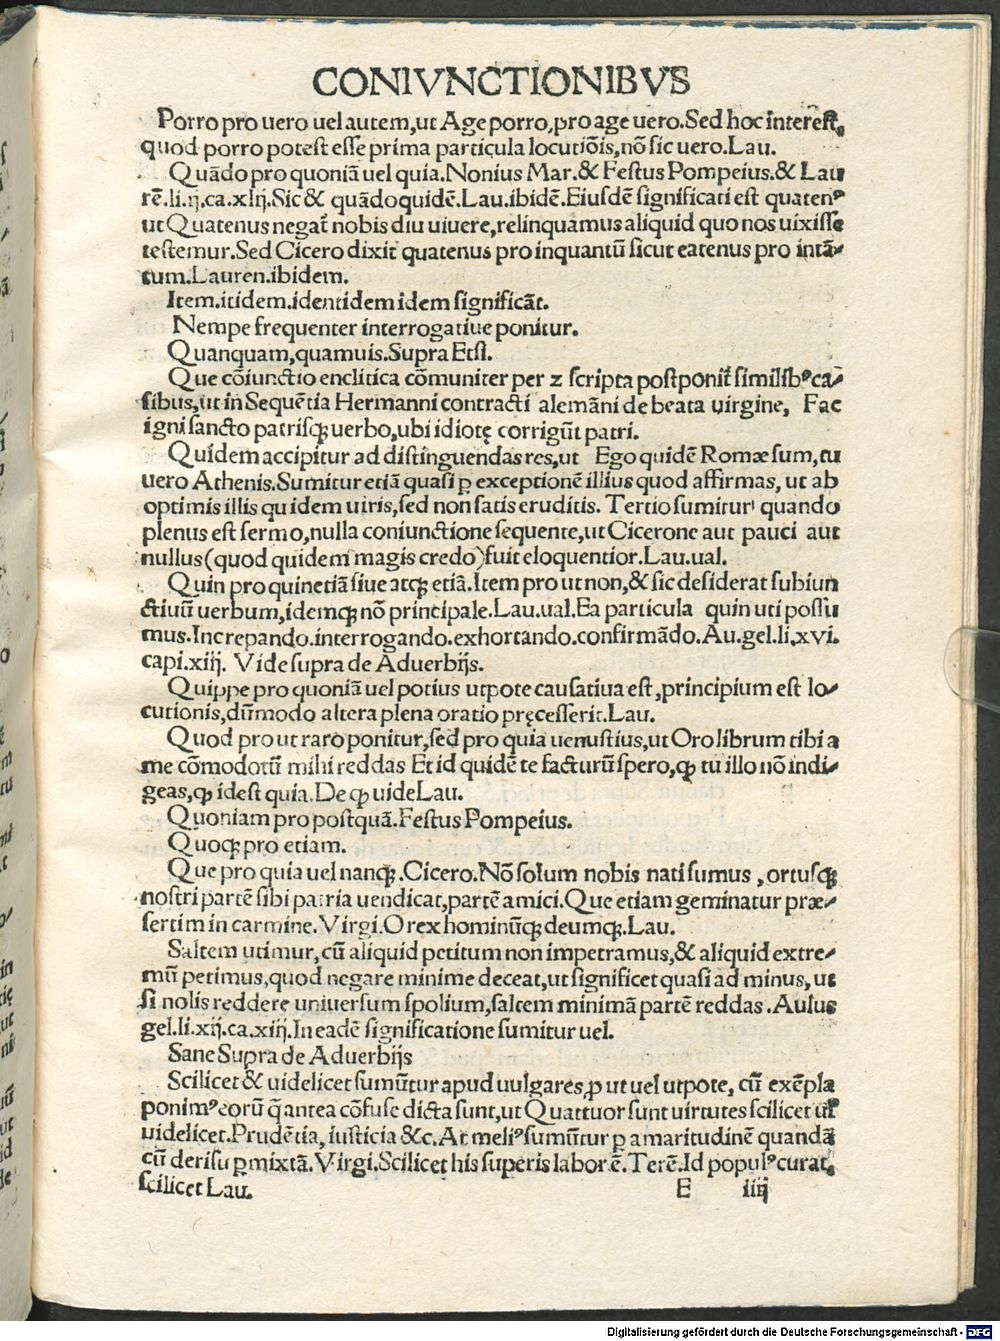 CONIVNCTIONIBVS
Porro pro uero uel autem,ut Age porro,pro age uero.Sed hoc interest,
quod porro potest esse prima particula locutiōis,nō sic uero.Lau.
Quādo pro quoniā uel quia.Nonius Mar.& Festus Pompeius.& Lau
rē.li.ij.ca.xlij.Sic & quādoquidē.Lau.ibidē.Eiusdē significati est quatenꝰ
ut Quatenus negat̄ nobis diu uiuere,relinquamus aliquid quo nos uixisse
testemur.Sed Cicero dixit quatenus pro inquantū sicut eatenus pro intā-
tum.Lauren.ibidem.
Item.itidem.identidem idem significāt.
Nempe frequenter interrogatiue ponitur.
Quanquam,quamuis.Supra Etsi.
Que cōiunctio enclitica cōmuniter per z scripta postponit̄ similibꝰ ca-
sibus,ut in Sequētia Hermanni contracti alemāni de beata uirgine, Fac
igni sancto patrisqꝫ uerbo,ubi idiotę corrigūt patri.
Quidem accipitur ad distinguendas res,ut Ego quidē Romæ sum,tu
uero Athenis.Sumitur etiā quasi ꝑ exceptionē illius quod affirmas, ut ab
optimis illis quidem uiris,sed non satis eruditis. Tertio sumitur quando
plenus est sermo,nulla coniunctione sequente,ut Cicerone aut pauci aut
nullus(quod quidem magis credo)fuit eloquentior.Lau.ual.
Quin pro quinetiā siue atqꝫ etiā.Item pro ut non,& sic desiderat subiun
ctiuū uerbum,idemqꝫ nō principale.Lau.ual.Ea particula quin uti possu
mus.Increpando.interrogando.exhortando.confirmādo.Au.gel.li.xvi.
capi.xiij. Vide supra de Aduerbijs.
Quippe pro quoniā uel potius utpote causatiua est,principium est lo-
cutionis,dūmodo altera plena oratio pręcesserit.Lau.
Quod pro ut raro ponitur,sed pro quia uenustius,ut Oro librum tibi a
me cōmodotū mihi reddas Et id quidē te facturū spero,ꝙ tu illo nō indi-
geas,ꝙ idest quia.De ꝙ uide Lau.
Quoniam pro postquā.Festus Pompeius.
Quoqꝫ pro etiam.
Que pro quia uel nanqꝫ.Cicero.Nō solum nobis nati sumus,ortusqꝫ
nostri partē sibi patria uendicat,partē amici.Que etiam geminatur præ-
sertim in carmine.Virgi.O rex hominūqꝫ deumqꝫ.Lau.
Saltem utimur,cū aliquid petitum non impetramus,& aliquid extre-
mū petimus,quod negare minime deceat,ut significet quasi ad minus, ut
si nolis reddere uniuersum spolium,saltem minimā partē reddas.Aulus
gel.li.xij.ca.xiij.In eadē significatione sumitur uel.
Sane Supra de Aduerbijs
Scilicet & uidelicet sumūtur apud uulgares,ꝓ ut uel utpote, cū exēpla
ponimꝰ eorū q̄ antea cōfuse dicta sunt,ut Quattuor sunt uirtutes scilicet ul̄
uidelicet.Prudētia, iusticia &c.At meliꝰ sumūtur ꝓ amaritudinē quandā
cū derisu ꝑmixtā.Virgi.Scilicet his superis labor ē.Terē.Id populꝰ curat,
scilicet Lau. E iiij
Digitalisierung gefördert durch die Deutsche Forschungsgemeinschaft - DFG